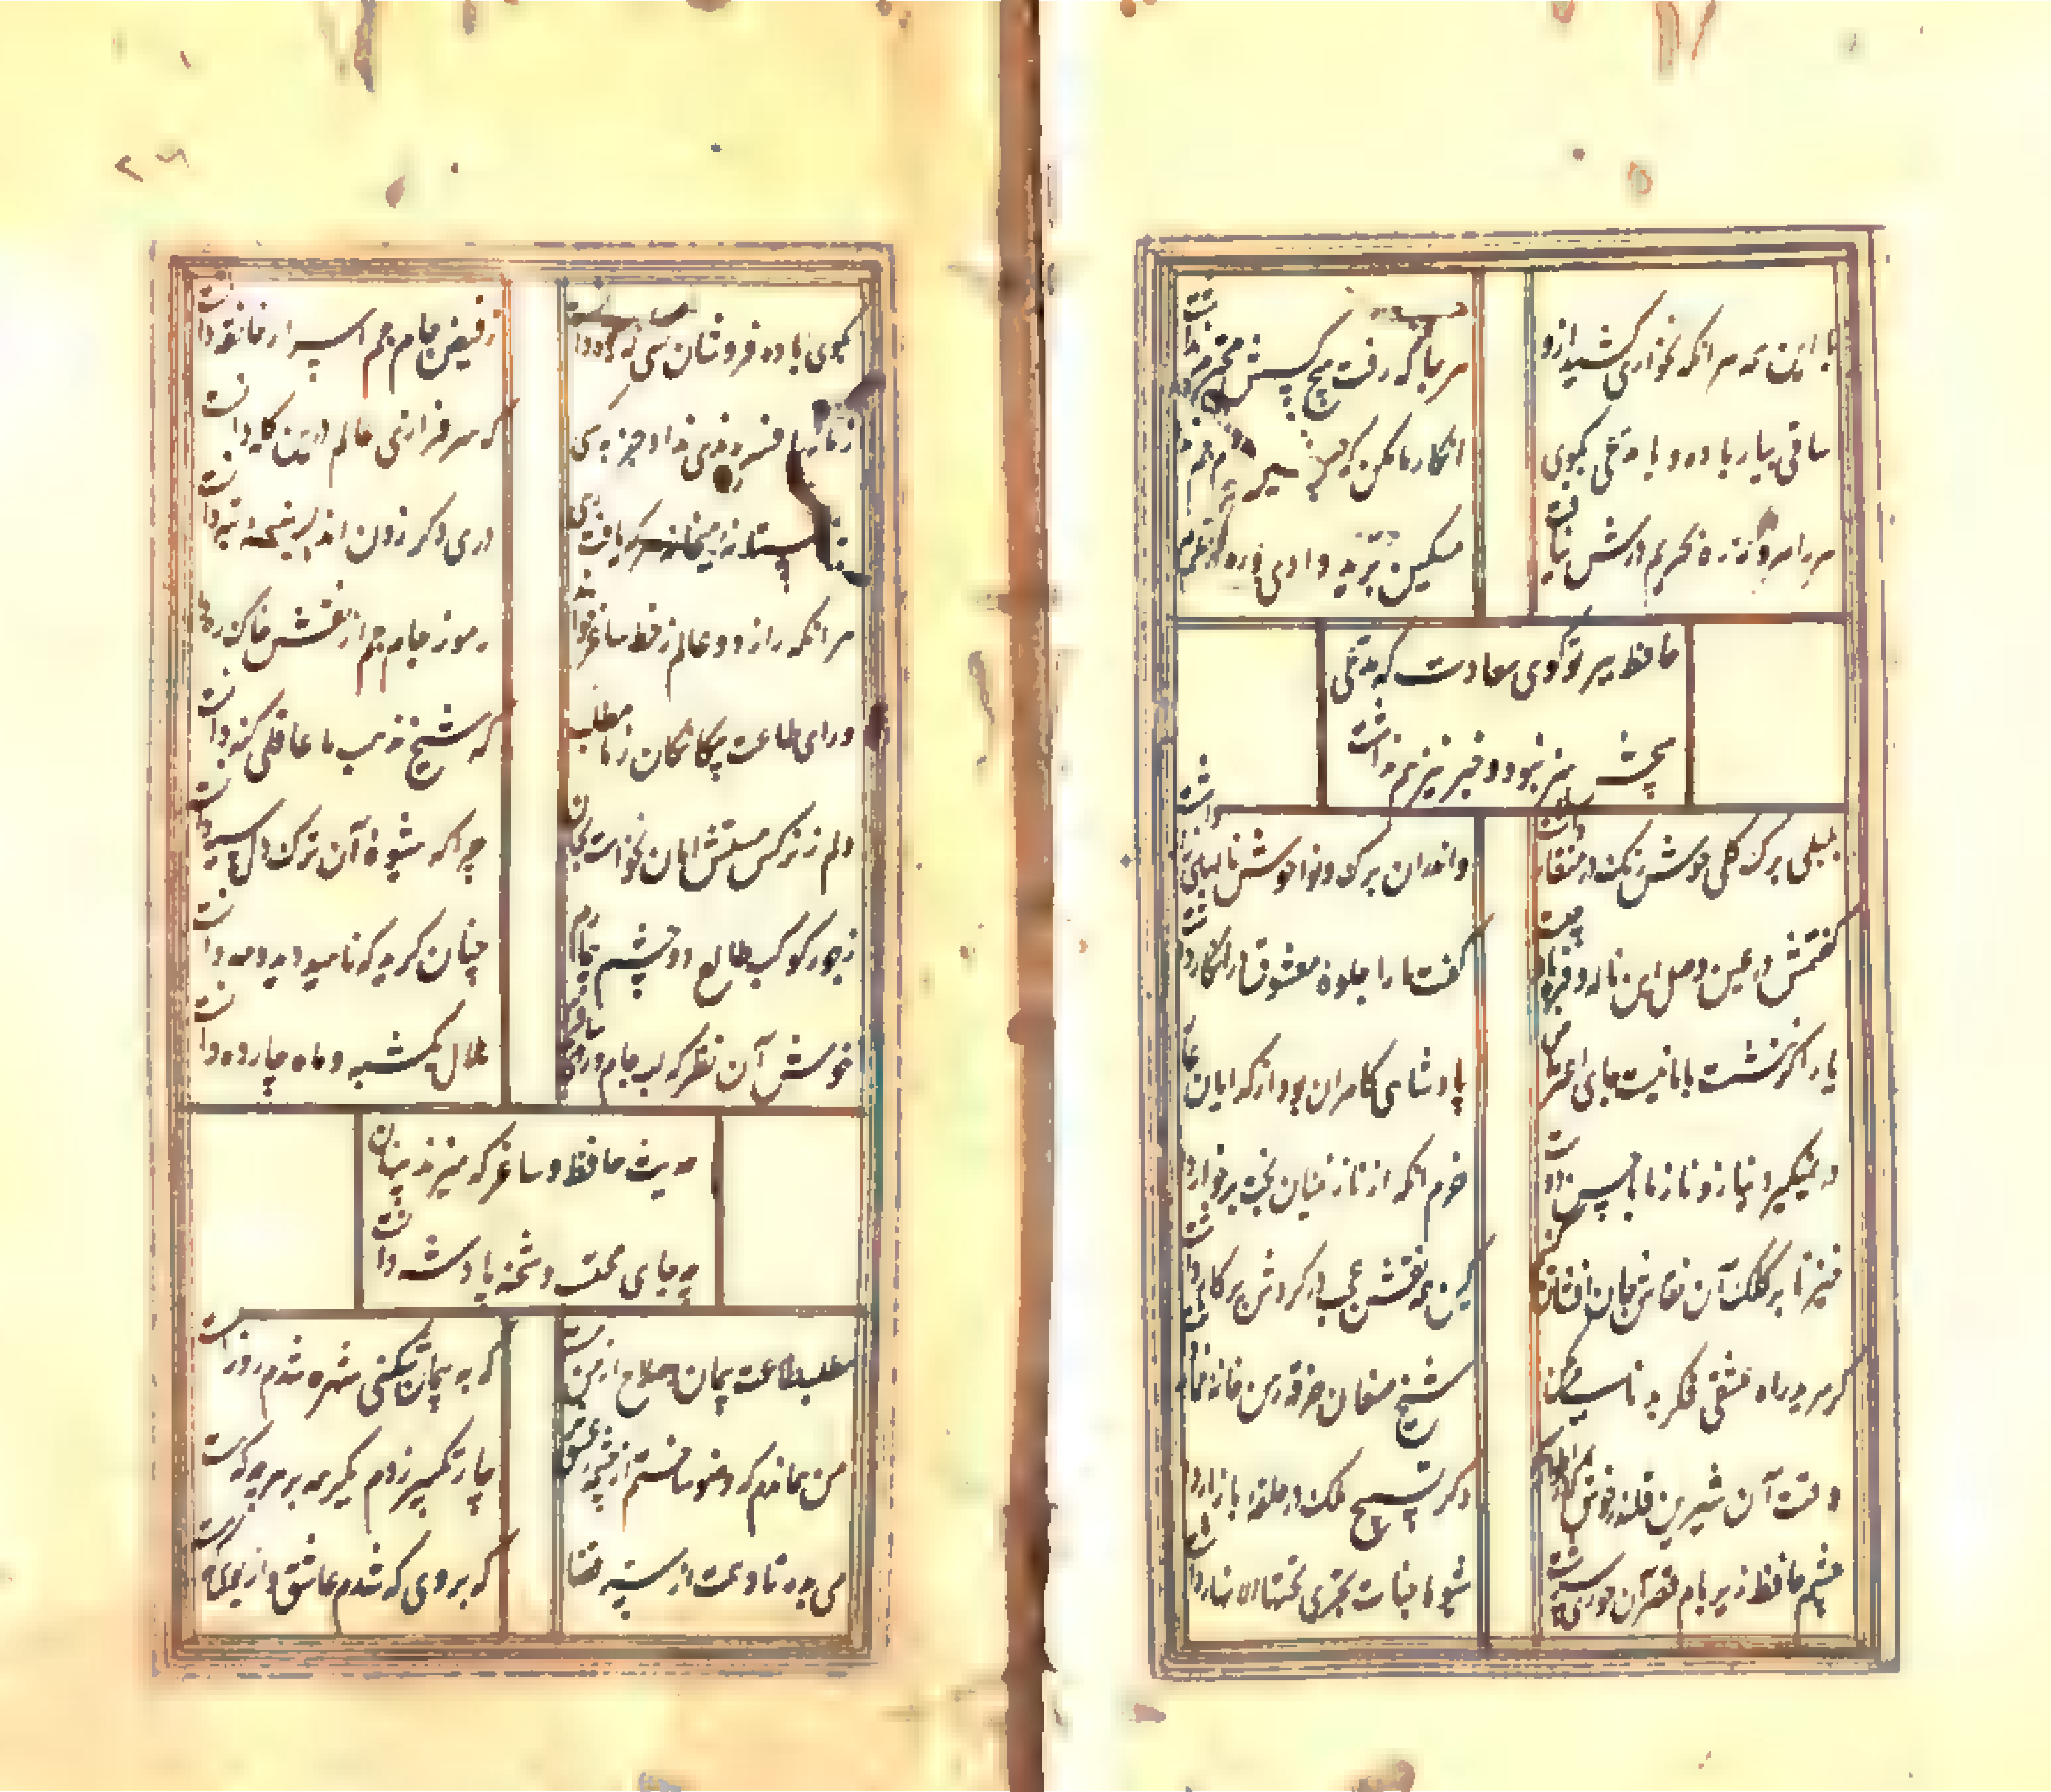 با این همه هر آنکه نخواری کشید ازو
هر جا که رفت هیچ کسش محترم نداشت
ساقی بیار باده و با مدعی بگوی
انکار ما مکن که
هر راهرو که ره بحریم درش نیافت
مسکین برید وادی و ره در حرم نداشت
حافظ ببر تو گوی سعادت که مدعی
هیچش هنر نبود و خبر نیز هم نداشت
بلبلی برک کلی خوش رنک در منقار داشت
واندران برک و نوا خوش نالهای زار داشت
کفتمش در عین وصل این ناله و فریاد چیست
کفت ما را جلوه معشوق در اینکار داشت
یار اگر ننشست با ما نیست جای اعتراض
پادشاهی کامران بود از کدایان عار داشت
در نمیکیرد نیاز و ناز ما با حسن دوست
خرم آنکه از نازنینان بخت برخوردار داشت
خیز تا بر کلک آن نقاش جان افشان کنیم
کین همه نقش عجب در کردش پرکار داشت
کر مرید راه عشقی فکر بدنامی مکن
شیخ صنعان خرقه رهن خانه خمار داشت
وقت آن شیرین قلندر خوش که در اطوار سیر
ذکر تسبیح ملک در حلقه زنار داشت
چشم حافظ زیر بام قصر آن حوری سرشت
شیوه جنات تجری تحتها الانهار داشت
۲۶
بکوی باده فروشان
ز فیض جام جم اسرار خانقه دانست
که سرفرازی عالم درین کله دانست
بر آستانه میخانه هر که یافت رهی
دری دکر زدن اندیشه تبه دانست
هر آنکه راز دو عالم ز خط ساغر خواند
رموز جام جم از نقش خاک ره دانست
ورای طاعت بیکانکان ز ما مطلب
که شیخ مذهب ما عاقلی کنه دانست
دلم ز نرکس مستش امان نخواست بجان
چرا که شیوه آن ترک دل سیه دانست
ز جور کوکب طالع دو چشمم
چنان کریست که ناهید دید و مه دانست
خوش آن نظر که لب جام و
هلال یکشبه و ماه چارده دانست
حدیث حافظ و ساغر که میزند پنهان
چه جای محتسب و شحنه پادشه دانست
مطلب طاعت پیمان صلاح از من مست
که به پیمانه کشی شهره شدم روز الست
من هماندم که وضو ساختم از چشمه عشق
چار تکبیر زدم یکسره بر هر چه که هست
می بده تا دهمت از سر قضا
که بروی که شدم عاشق و از بوی که مست